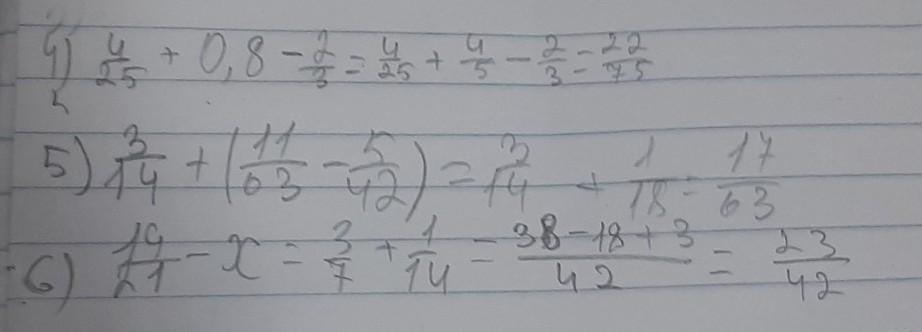 4) 4/25 + 0,8 - 2/3 = 4/25 + 4/5 - 2/3 = 22/75
5) 3/14 + (11/63 - 5/42) = 3/14 + 1/18 = 17/63
6) 19/21 - x = 3/7 + 1/14 = (38-18+3)/42 = 23/42